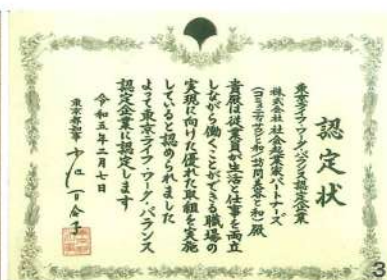 認定状
東京ライフ・ワーク・バランス認定企業
株式会社 社会起業家パートナーズ
(コミュニティサロンと和/訪問美容と和) 殿
貴殿は従業員が生活と仕事を両立
しながら働くことができる職場の
実現に向けた優れた取組を実施
していると認められました
よって東京ライフ・ワーク・バランス
認定企業に認定します
令和五年二月七日
東京都知事 小池百合子
3